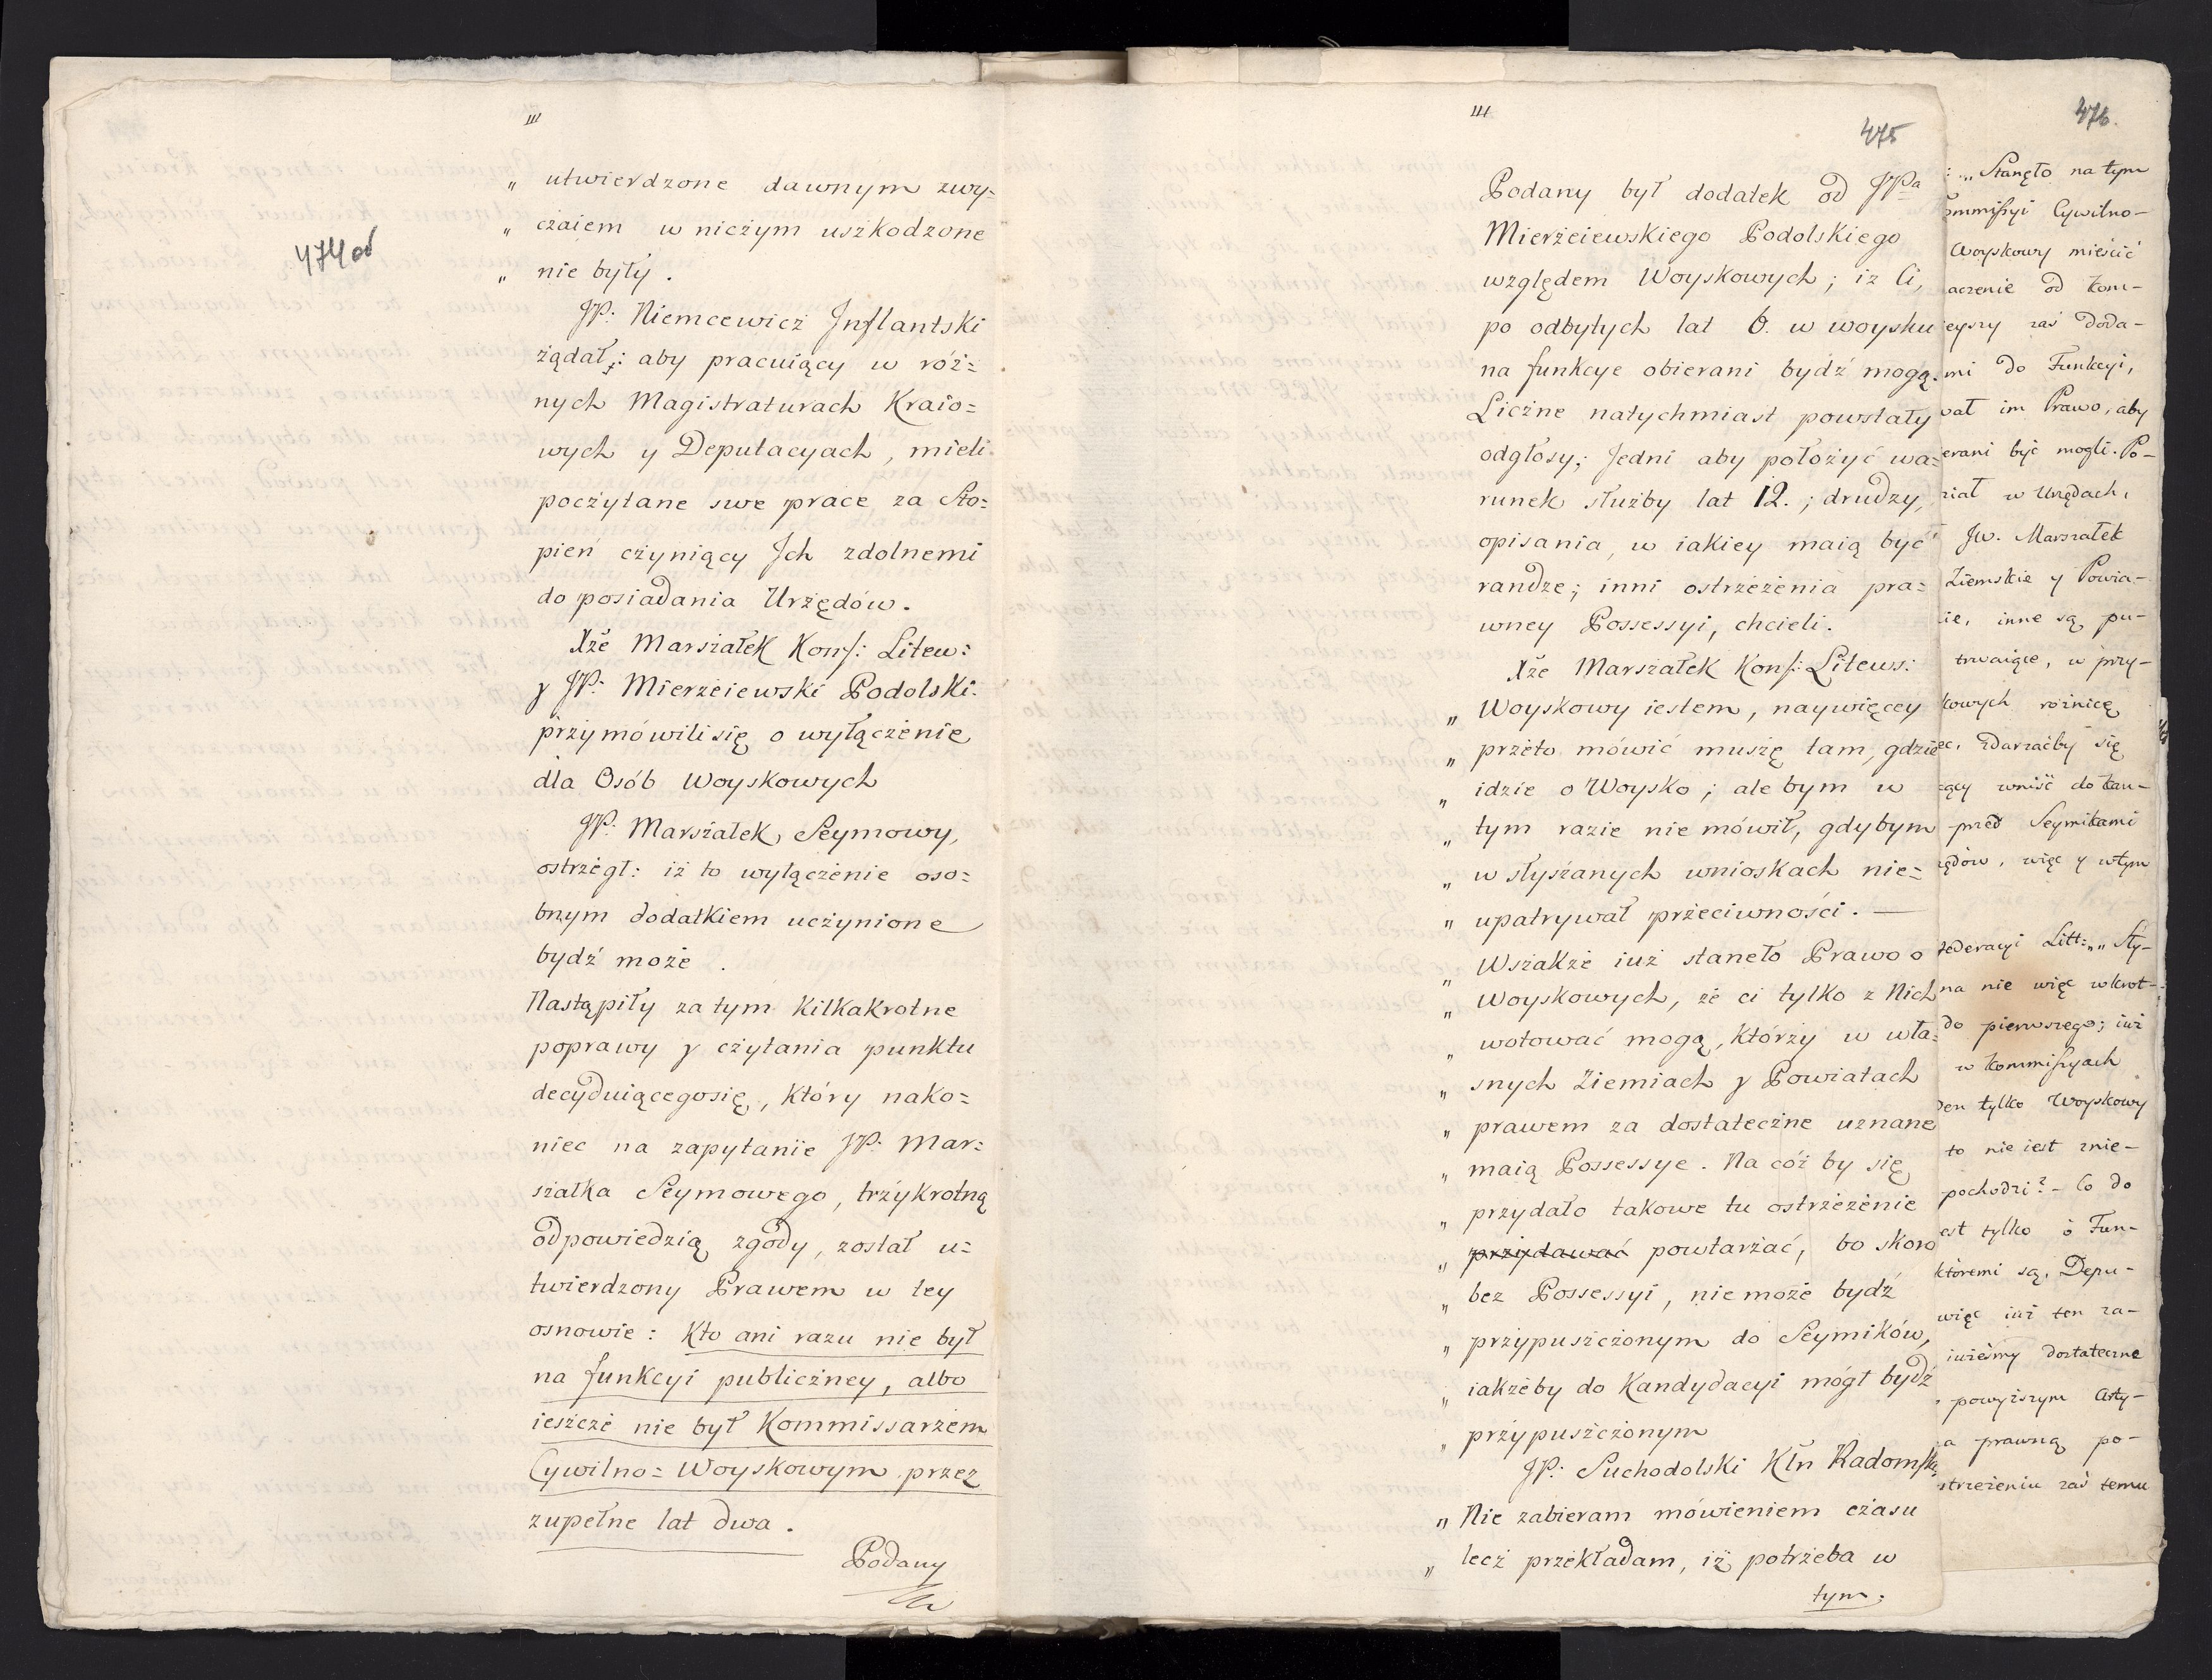 III
474 od
„ utwierdzone dawnym zwy=
„ czaiem w nicżym uszkodzone
„ nie były.
JP: Niemcewicż Jnflantski
żądał: aby pracuiący w róż=
nych Magistraturach Kraio=
wych y Deputacyach, mieli
pocżytane swe prace za Sto=
pień cżyniący Jch zdolnemi
do posiadania Urżędów.
Xże Marszałek Konf: Litew:
y JP: Mierżeiewski Podolski
prżymówili się o wyłącżenie
dla Osób Woyskowych
JP: Marszałek Seymowy,
ostrżegł: iż to wyłącżenie oso=
bnym dodatkiem ucżynione
bydź może.
Nastąpiły za tym kilkakrotne
poprawy y cżytania punktu
decyduiącego się, który nako=
niec na zapytanie JP: Mar=
szałka Seymowego, trżykrotną
odpowiedzią zgody, został u=
twierdzony Prawem w tey
osnowie: Kto ani razu nie był
na funkcyi publicżney, albo
ieszcże nie był Kommissarżem
Cywilno=Woyskowym przez
zupełne lat dwa.
Podany
III
475
Podany był dodatek od JPa
Mierżeiewskiego Podolskiego
względem Woyskowych; iż Ci,
po odbytych lat 6. w woysku
na funkcye obierani bydź mogą.
Licżne natychmiast powstały
odgłosy; Jedni aby położyć wa=
runek służby lat 12.; drudzy,
opisania, w iakiey maią być
randze; inni ostrżeżenia pra=
wney Possessyi, chcieli.
Xże Marszałek Konf: Litews:
„ Woyskowy iestem, naywięcey
„ przeto mówić muszę tam, gdzie
„ idzie o Woysko; ale bym w
„ tym razie nie mówił, gdybym
„ w słyszanych wnioskach nie=
„ upatrywał przeciwności. —
„ Wszakże iuż staneło Prawo o
„ Woyskowych, że ci tylko z Nich
„ wotować mogą, którży w wła=
„ snych Ziemiach y Powiatach
„ prawem za dostatecżne uznane
„ maią Possessye. Na cóż by się
„ przydało takowe tu ostrżeżenie
„ prżydawać powtarżać, bo skoro
„ bez Possessyi, nie może bydź
„ prżypuszcżonym do Seymików,
„ iakżeby do Kandydacyi mógł bydź
„ prżypuszcżonym
JP: Suchodolski Kłn Radomski
„ Nie zabieram mówieniem cżasu
„ lecż przekładam, iż potrżeba w
tym.
476.
„ Stanęło na tym
ommissyi Cywilno-
Woyskowy mieścić
aczenie od kom-
eyszy zaś doda-
mi do Funkcyi,
wał im Prawo, aby
erani być mogli. Po-
ział w Urzędach,
Jw. Marszałek
Ziemskie y Powia-
ie, inne są pu-
trwaiące, w przy-
kowych różnicę
ec, zdarzaćby się
ący wniść do kan-
przed Seymikami
ędów, więc y w tym
federacyi Litt: „ Sły-
na nie więc wkrot-
do pierwszego; iuż
w Kommissyach
den tylko Woyskowy
to nie iest znie-
pochodzi? - Co do
est tylko o Fun-
któremi są, Depu-
więc iuż ten za-
iużeśmy dostateczne
powyższym Arty-
a prawną po-
strzeżeniu zaś temu